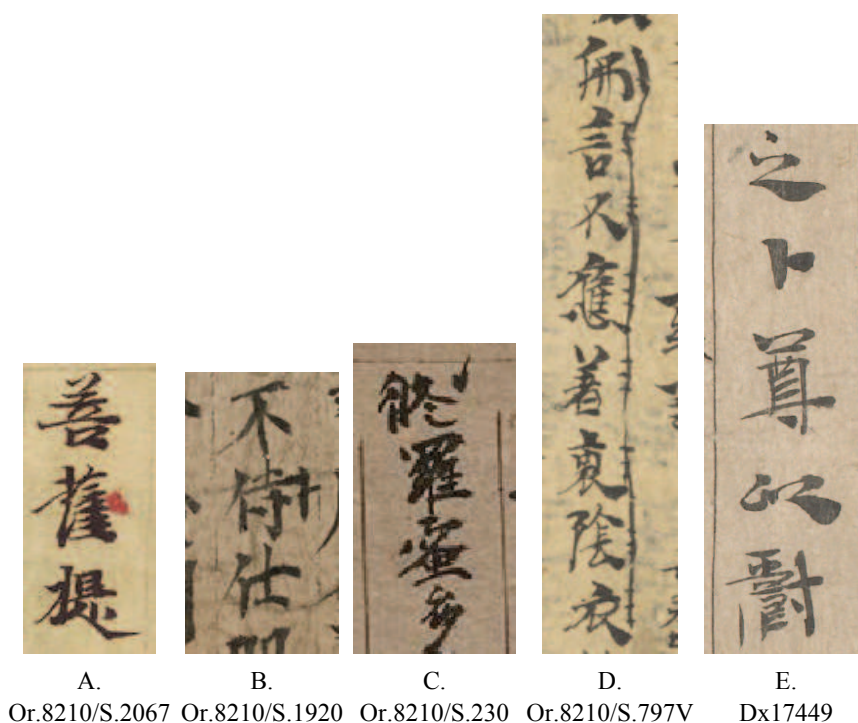 菩薩提
不待仕
羅蜜多
佛言不應著裏陰衣
之卜尊以爵
A.
Or.8210/S.2067
B.
Or.8210/S.1920
C.
Or.8210/S.230
D.
Or.8210/S.797V
E.
Dx17449